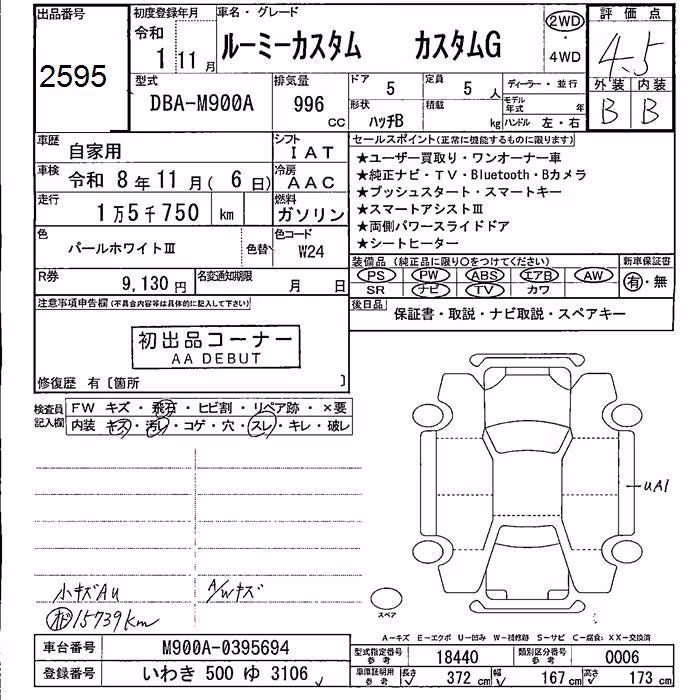 出品番号
2595
初度登録年月
令和
1 11月
車名・グレード
ルーミーカスタム カスタムG
2WD
・
4WD
評価点
4.5
外装 内装
B B
型式
DBA-M900A
排気量
996
CC
ドア
5
定員
5人
ディーラー・並行
形状
ハッチB
積載
kg
モデル年式 年
ハンドル 左・右
車歴
自家用
シフト
IAT
車検
令和 8年11月(6日)
冷房
AAC
走行
1万5千750 km
燃料
ガソリン
色
パールホワイトⅢ
色替
色コード
W24
R券
9,130円
名変通知期限
月 日
セールスポイント(正常に機能するものに限ります)
★ユーザー買取り・ワンオーナー車
★純正ナビ・TV・Bluetooth・Bカメラ
★プッシュスタート・スマートキー
★スマートアシストⅢ
★両側パワースライドドア
★シートヒーター
装備品(純正品に限り○をつけてください)
PS PW ABS エアB AW
SR ナビ TV カワ
新車保証書
有・無
後日品
保証書・取説・ナビ取説・スペアキー
注意事項申告欄(不具合内容等は具体的に記入して下さい)
初出品コーナー
AA DEBUT
修復歴 有〔箇所 〕
検査員記入欄
FW キズ・飛石・ヒビ割・リペア跡・×要
内装 キズ・汚レ・コゲ・穴・スレ・キレ・破レ
UA1
小キズAU
A/Wキズ
15739km
スペア
A-キズ E-エクボ U-凹み W-補修跡 S-サビ C-腐食 XX-交換済
車台番号
M900A-0395694
登録番号
いわき 500 ゆ 3106
型式指定番号
参考
18440
類別区分番号
参考
0006
車庫証明用
参考
長さ 372 cm
幅 167 cm
高さ 173 cm